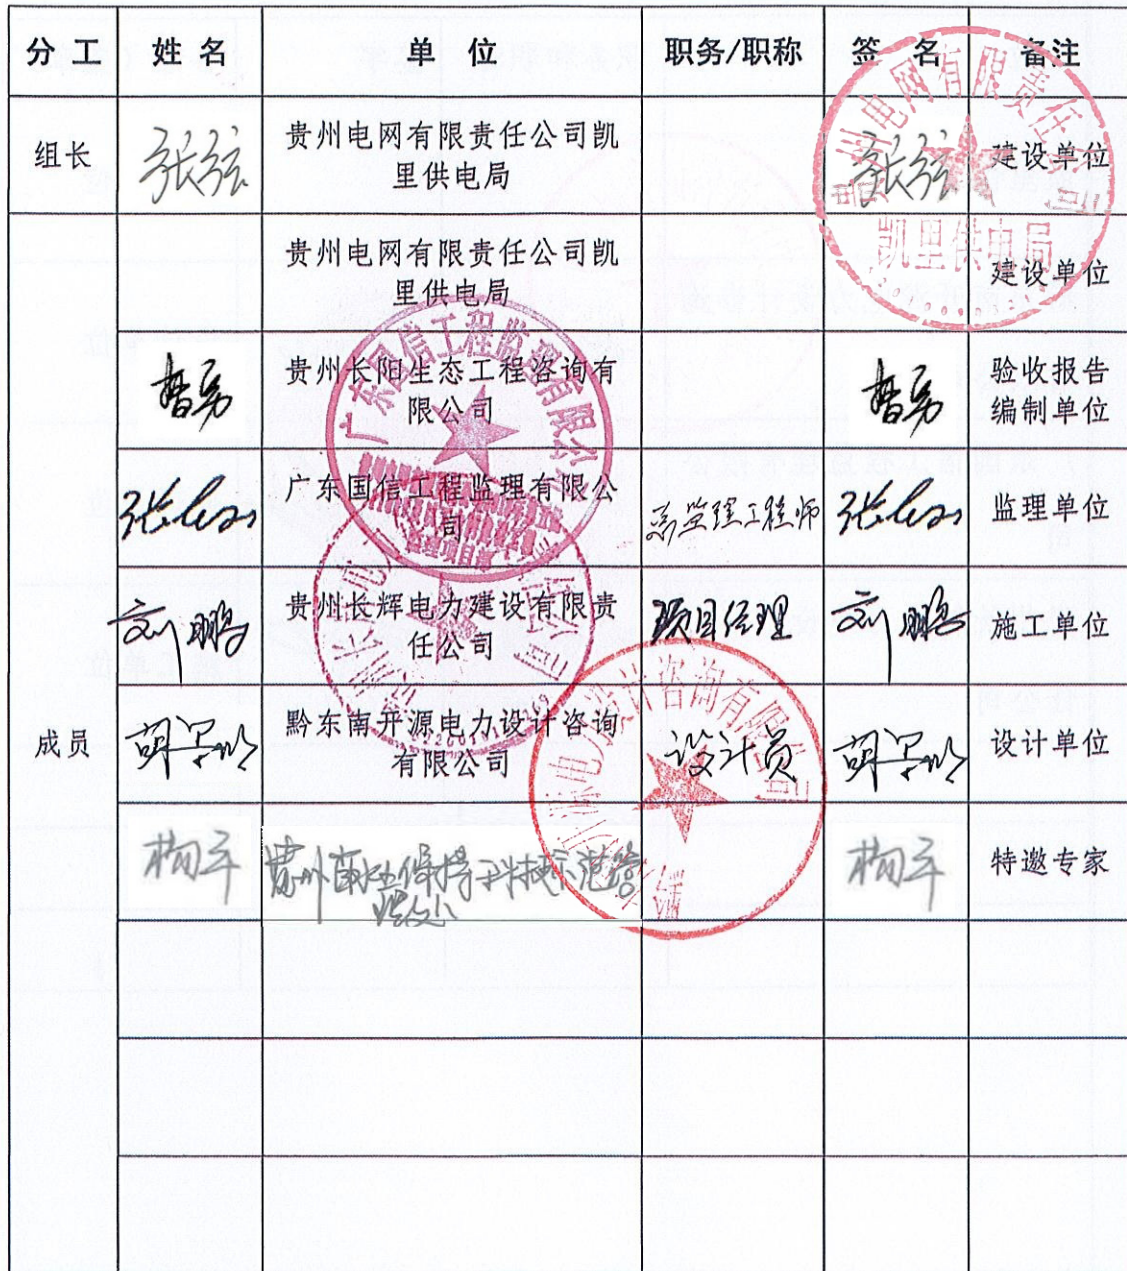 分工 姓名 单位 职务/职称 签名 备注
组长 张弦 贵州电网有限责任公司凯
里供电局 张弦 建设单位
贵州电网有限责任公司凯
里供电局 建设单位
贵州长阳生态工程咨询有
限公司 验收报告
编制单位
广东国信工程监理有限公
司 监理工程师 监理单位
刘鹏 贵州长辉电力建设有限责
任公司 项目经理 刘鹏 施工单位
成员 黔东南开源电力设计咨询
有限公司 设计员 设计单位
特邀专家
贵州电网有限责任公司
凯里供电局
广东国信工程监理有限公司
监理项目部